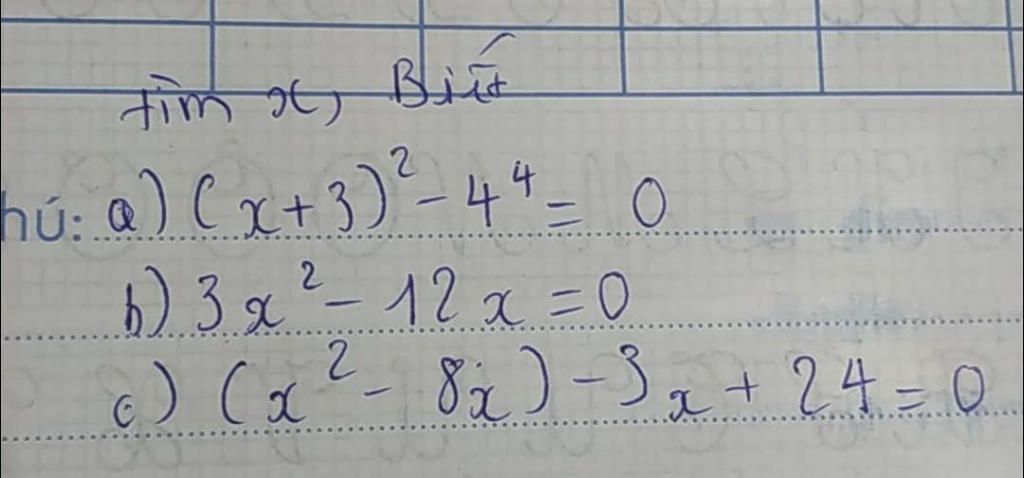 tìm x, Biết
hú: a) (x+3)² - 4⁴ = 0
b) 3x² - 12x = 0
c) (x² - 8x) - 3x + 24 = 0